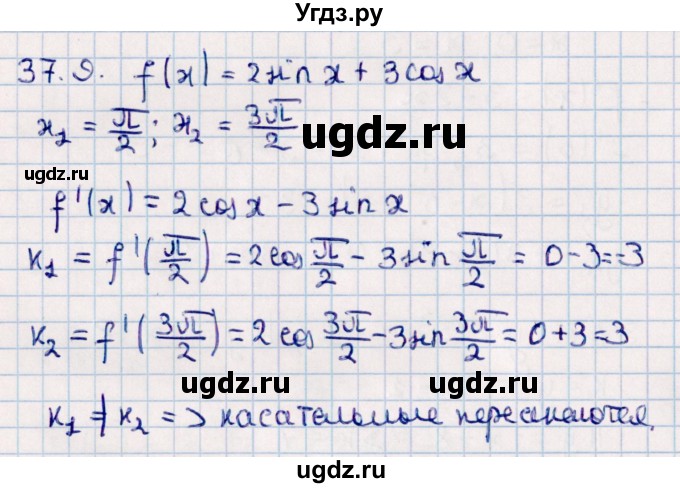 Угдз.ру
37.9. f(x) = 2sin x + 3cos x
x₁ = π/2; x₂ = 3π/2
ugdz.ru
ugdz.ru
f'(x) = 2cos x - 3sin x
ugdz.ru
k₁ = f'(π/2) = 2cos π/2 - 3sin π/2 = 0-3=-3
k₂ = f'(3π/2) = 2cos 3π/2 - 3sin 3π/2 = 0+3=3
ugdz.ru
ugdz.ru
k₁ ≠ k₂ => касательные пересекаются.
ugdz.ru